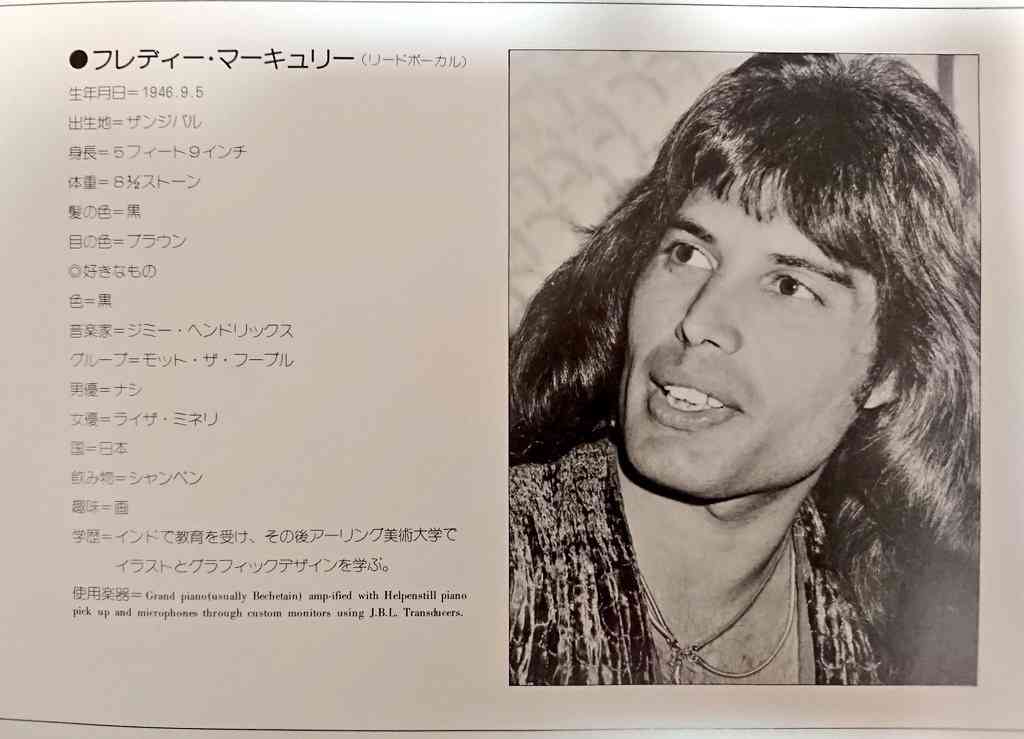 ●フレディー・マーキュリー（リードボーカル）
生年月日＝1946.9.5
出生地＝ザンジバル
身長＝5フィート9インチ
体重＝8½ストーン
髪の色＝黒
目の色＝ブラウン
◎好きなもの
色＝黒
音楽家＝ジミー・ヘンドリックス
グループ＝モット・ザ・フープル
男優＝ナシ
女優＝ライザ・ミネリ
国＝日本
飲み物＝シャンペン
趣味＝画
学歴＝インドで教育を受け、その後アーリング美術大学で
イラストとグラフィックデザインを学ぶ。
使用楽器＝Grand piano(usually Bechetain) amp-ified with Helpenstill piano
pick up and microphones through custom monitors using J.B.L. Transducers.